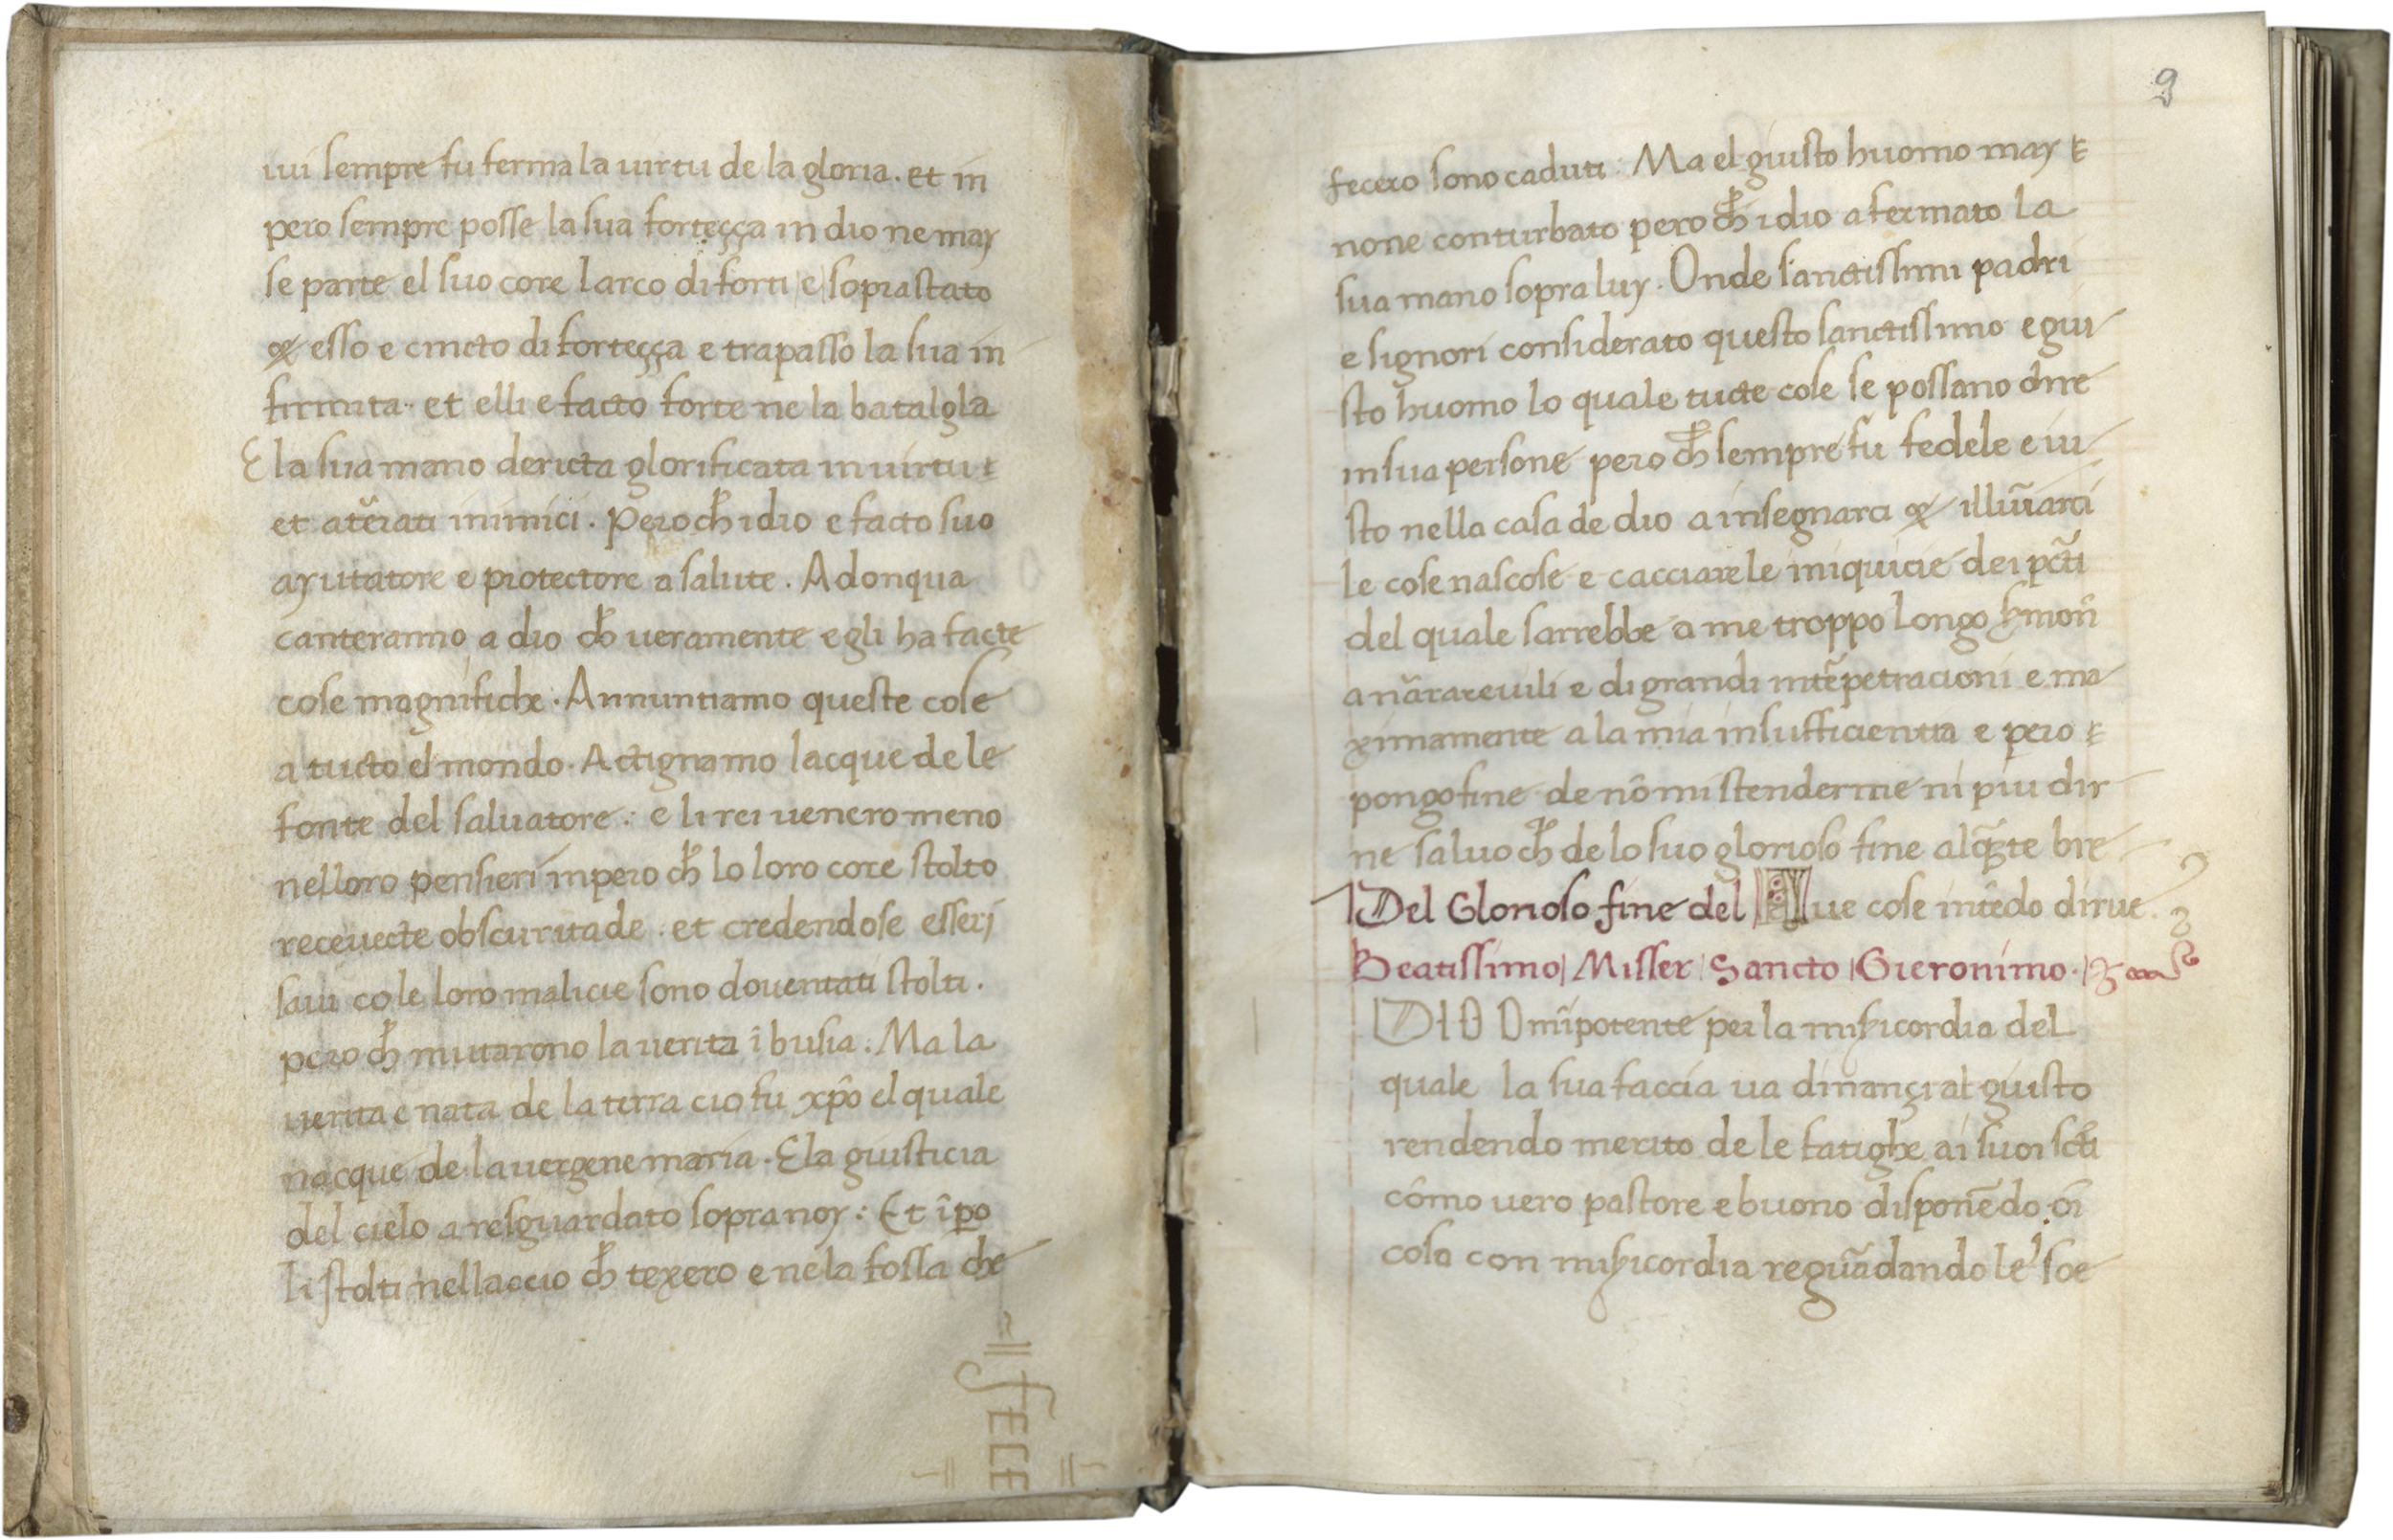 uui sempre fu ferma la uirtu de la gloria. et in
pero sempre posse la sua forteçça in dio ne may
se parte el suo core larco di forti |e| soprastato
esso e cincto di forteçça e trapasso la sua in
firmita. et elli e facto forte ne la batalgla
E la sua mano dericta glorificata in uirtu
et at̃erati inimici. Pero ch̃ idio e facto suo
ayutatore e protectore a salute. Adonqua
canteranno a dio ch̃ ueramente egli ha facte
cose magnifiche. Annuntiamo queste cose
a tucto el mondo. Actignamo lacque de le
fonte del saluatore: e li rei uenero meno
nelloro pensieri inpero ch̃ lo loro core stolto
receuecte obscuritade. et credendose esserj
saui co le loro malicie sono douentati stolti.
pero ch̃ mutarono la uerita ĩ busia: Ma la
uerita e nata de la terra cio fu xp̃o el quale
nacque de la uergene maria. E la giusticia
del cielo a resguardato sopra noy: Et ĩpo
li stolti nellaccio ch̃ texero e ne la fossa che
FECE
9
fecero sono caduti: Ma el giusto huomo may
none conturbato pero ch̃ idio a fermato la
sua mano sopra luy. Onde sanctissimi padri
e signori considerato questo sanctissimo e giu
sto huomo lo quale tucte cose se possano dire
in sua persone pero ch̃ sempre fu fedele e iu
sto nella casa de dio a insegnarci illũiarci
le cose nascose e cacciare le iniquicie dei pc̃ti
del quale sarrebbe a me troppo longo
a nãrare uili e di grandi int̃epetracioni e ma
ximamente a la mia insufficientia e pero
pongo fine de nõ mi stenderme ni piu dir
ne saluo ch̃ de lo suo glorioso fine alq̃te bre
Del Glorioso fine del ue cose int̃edo dirue.
Beatissimo| Misser |Sancto |Gieronimo.
DIO Om̃ipotente per la misicordia del
quale la sua faccia ua dinançi al giusto
rendendo merito de le fatighe ai suoi sc̃ti
cõmo uero pastore e buono disponẽdo õi
cosa con misicordia regũadando le soe